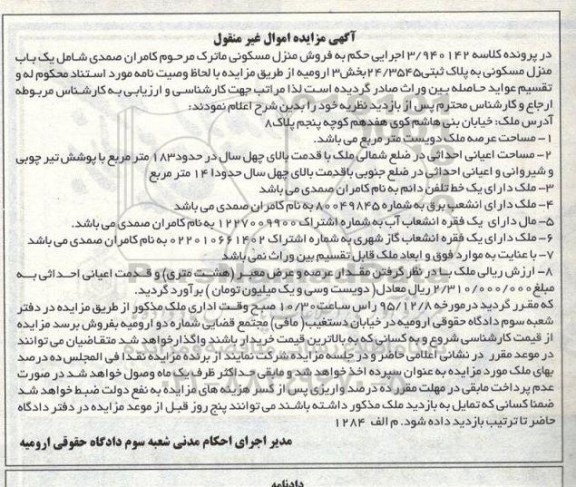 آگهی مزایده اموال غیر منقول
در پرونده کلاسه ۳/۹۴۰۱۴۲ اجرایی حکم به فروش منزل مسکونی ماترک مرحوم کامران صمدی شامل یک باب
منزل مسکونی به پلاک ثبتی ۲۴/۳۵۴۵ بخش ۳ ارومیه از طریق مزایده با لحاظ وصیت نامه مورد استناد محکوم له و
تقسیم عواید حاصله بین وراث صادر گردیده است لذا مراتب جهت کارشناسی و ارزیابی به کارشناس مربوطه
ارجاع و کارشناس محترم پس از بازدید نظریه خود را بدین شرح اعلام نمودند:
آدرس ملک: خیابان بنی هاشم کوی هفدهم کوچه پنجم پلاک ۸
۱- مساحت عرصه ملک دویست متر مربع می باشد.
۲- مساحت اعیانی احداثی در ضلع شمالی ملک با قدمت بالای چهل سال در حدود ۱۸۳ متر مربع با پوشش تیر چوبی
و شیروانی و اعیانی احداثی در ضلع جنوبی باقدمت بالای چهل سال حدودا ۱۴ متر مربع
۳- ملک دارای یک خط تلفن دائم به نام کامران صمدی می باشد
۴- ملک دارای انشعب برق به شماره ۸۰۰۴۹۸۴۵ به نام کامران صمدی می باشد
۵- مال دارای یک فقره انشعاب آب به شماره اشتراک ۱۲۲۷۰۰۹۹۰۰ به نام کامران صمدی می باشد.
۶- ملک دارای یک فقره انشعاب گاز شهری به شماره اشتراک ۰۲۲۰۱۰۶۶۱۴۰۲ به نام کامران صمدی می باشد
۷- با عنایت به موارد فوق و ابعاد ملک قابل تقسیم بین وراث نمی باشد
۸- ارزش ریالی ملک با در نظر گرفتن مقدار عرصه و عرض معبر (هشت متری) و قدمت اعیانی احداثی به
مبلغ ۲/۳۱۰/۰۰۰/۰۰۰ ریال معادل( دویست وسی و یک میلیون تومان ) برآورد گردید.
که مقرر گردید درمورخه ۹۵/۱۲/۸ راس ساعت ۱۰/۳۰ صبح وقت اداری ملک مذکور از طریق مزایده در دفتر
شعبه سوم دادگاه حقوقی ارومیه در خیابان دستغیب( مافی) مجتمع قضایی شماره دو ارومیه بفروش برسد مزایده
از قیمت کارشناسی شروع و به کسانی که به بالاترین قیمت خریدار باشند واگذار خواهد شد متقاضیان می توانند
در موعد مقرر در نشانی اعلامی حاضر و در جلسه مزایده شرکت نمایند از برنده مزایده نقدا فی المجلس ده درصد
بهای ملک مورد مزایده به عنوان سپرده اخذ خواهد شد و مابقی حداکثر ظرف یک ماه وصول خواهد شد در صورت
عدم پرداخت مابقی در مهلت مقرر ده درصد واریزی پس از کسر هزینه های مزایده به نفع دولت ضبط خواهد شد
ضمنا کسانی که تمایل به بازدید ملک مذکور داشته باشند می توانند پنج روز قبل از موعد مزایده در دفتر دادگاه
حاضر تا ترتیب بازدید داده شود. م الف ۱۲۸۴
مدیر اجرای احکام مدنی شعبه سوم دادگاه حقوقی ارومیه
دادنامه